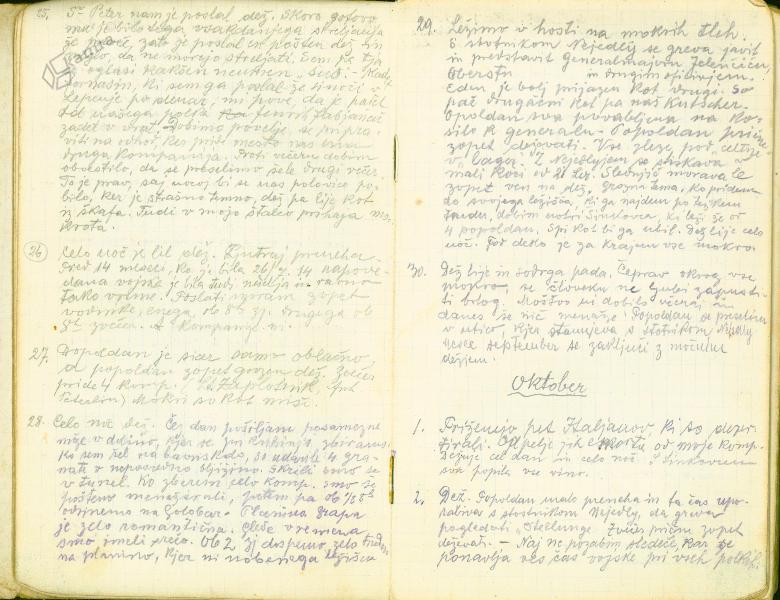 25. Sv. Peter nam je poslal dež. Skoro gotovo
je bilo vsakdanjega streljanja
že zato je poslal en pošten dež in
da ne morejo streljati. Sem pa tja
oglasi kakšen
sem ga poslal že sinoči v
Lepenje po denar, mi pove, da je padel
od našega polka
zadet v vrat. Dobimo povelje, se pripra-
viti na odhod, ker pride mesto nas ena
druga kompanija. Proti večeru dobim
obvestilo, da se preselimo šele drugi večer.
To je prav, saj nocoj bi se nas polovico po-
bilo, ker je strašno temno, dež pa lije kot
iz škafa. Tudi v mojo štalco prihaja mo-
krota.
26 Celo noč je lil dež. Zjutraj preneha.
Pred 14 meseci, ko je bila 26/7. 14 napove-
dana vojska je bila tudi nedelja in ravno
tako vreme. Poslati moram zopet
vodnike, enega ob 8h zj. drugega ob
5h zvečer. A kompanije ni.
27. Dopoldan je sicer samo oblačno,
a popoldan zopet grozen dež. Zvečer
pride 4 komp. (Lt. Zaplotnik, fnt
Peterlin) Mokri so kot miši.
28. Celo noč dež. Čez dan pošiljam posamezne
može v dolino, kjer se pri kuhinji zbiramo.
Ko sem šel na so udarile 4 gra-
nate v neposredno bližino. Skrili smo se
v tunel. Ko zberem celo komp. smo se
pošteno menažirali, potem pa ob 1/2 8h
odrinemo na Golobar. Planina
je zelo romantična. Glede vremena
smo imeli srečo. Ob 2h zj dospemo zelo trudni
na planino, kjer ni nobenega ležišča
29. Ležimo v hosti na mokrih tleh.
S stotnikom Nejedly se greva javit
in predstavit generalmajorju
Oberstu in drugim oficirjem.
Eden je bolj prijazen kot drugi. So
pač drugačni kot pa naš Kutscher.
Opoldan sva povabljena na ko-
silo k generalu. Popoldan prične
zopet deževati. Vse zleze pod „celtnje“
v „lager“. Z Nejedlyjem se stiskava v
mali koči od 21 lež. Slednjič morava le
zopet ven na dež. Grozna tema. Ko pridem
do svojega ležišča, ki ga najdem po težkem
trudu, dobim notri Šinkovca, ki leži že od
4 popoldan. Spi kot bi ga ubil. Dež lije celo
noč. Pod deko je za krajem vse mokro.
30. Dež lije in sodrga pada. Čeprav okrog vse
mokro, se človeku ne ljubi zapusti-
ti brlog. Moštvo ni dobilo včeraj in
danes še nič menaže. Popoldan se preselim
v utico, kjer stanujeva s stotnikom Nejedly
Mesec september se zaključi z močnim
dežjem.
Oktober
1. Priženejo pet Italjanov, ki so dezer-
tirali. Odpelje jih eskorta od moje komp.
Dežuje cel dan in celo noč. S Šinkovcem
sva popila vse vino.
2. Dež. Popoldan malo preneha in ta čas upo-
rabiva s stotnikom Nejedly, da greva
pogledati Stellunge. Zvečer prične zopet
deževati. – Naj ne pozabim sledeče, kar se
ponavlja ves čas vojske pri vseh polkih.